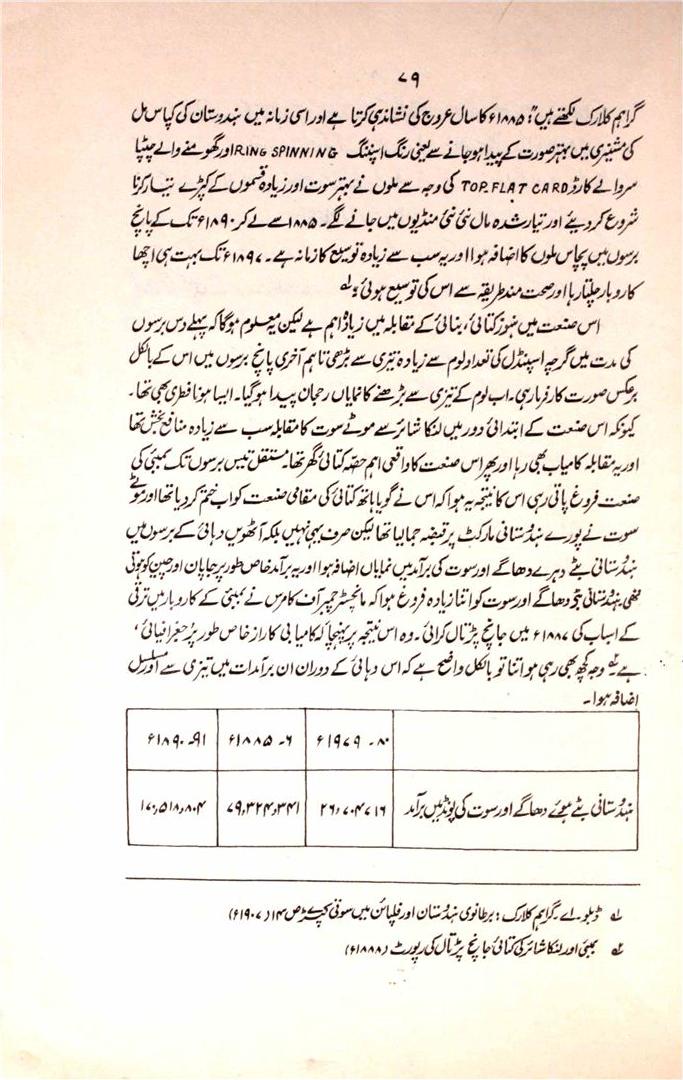 ۷۹
گراہم کلارک لکھتے ہیں: "۱۸۸۵ء کا سال عروج کی نشاندہی کرتا ہے اور اسی زمانہ میں ہندوستان کی کپاس مل
کی مشینری میں بہتر صورت کے پیدا ہو جانے سے یعنی رنگ اسپننگ RING SPINNING اور گھومنے والے چپٹا
سر والے کارڈ TOP.FLAT CARD کی وجہ سے ملوں نے بہتر سوت اور زیادہ قسموں کے کپڑے تیار کرنا
شروع کر دیئے اور تیار شدہ مال نئی نئی منڈیوں میں جانے لگے۔ ۱۸۸۵ سے لے کر ۱۸۹۰ء تک کے پانچ
برسوں میں پچاس ملوں کا اضافہ ہوا اور یہ سب سے زیادہ توسیع کا زمانہ ہے۔ ۱۸۹۷ء تک بہت ہی اچھا
کاروبار چلتا رہا اور صحت مند طریقہ سے اس کی توسیع ہوئی۔" لہ
اس صنعت میں ہنوز کتائی، بنائی کے مقابلہ میں زیادہ اہم ہے لیکن یہ معلوم ہوگا کہ پہلے دس برسوں
کی مدت میں گرچہ اسپنڈل کی تعداد لوم سے زیادہ تیزی سے بڑھی تاہم آخری پانچ برسوں میں اس کے بالکل
برعکس صورت کارفرما رہی۔ اب لوم کے تیزی سے بڑھنے کا نمایاں رحجان پیدا ہو گیا۔ ایسا ہونا فطری بھی تھا۔
کیونکہ اس صنعت کے ابتدائی دور میں لنکا شائر سے موٹے سوت کا مقابلہ سب سے زیادہ منافع بخش تھا
اور یہ مقابلہ کامیاب بھی رہا اور پھر اس صنعت کا واقعی اہم حصہ کتائی گھر تھا۔ مستقل تیس برسوں تک بمبئی کی
صنعت فروغ پاتی رہی اس کا نتیجہ یہ ہوا کہ اس نے گویا ہاتھ کتائی کی مقامی صنعت کو اب ختم کر دیا تھا اور موٹے
سوت نے پورے ہندوستانی مارکٹ پر قبضہ جما لیا تھا لیکن صرف یہی نہیں بلکہ آٹھویں دہائی کے برسوں میں
ہندوستانی بٹے دہرے دھاگے اور سوت کی برآمد میں نمایاں اضافہ ہوا اور یہ برآمد خاص طور پر جاپان اور چین کو ہوتی
تھی۔ ہندوستانی بٹی دھاگے اور سوت کو اتنا زیادہ فروغ ہوا کہ مانچسٹر چمبر آف کامرس نے بمبئی کے کاروبار میں ترقی
کے اسباب کی ۱۸۸۷ء میں جانچ پڑتال کرائی۔ وہ اس نتیجہ پر پہنچا "کہ کامیابی کا راز خاص طور پر جغرافیائی،
ہے" ۲ہ وجہ کچھ بھی رہی ہو اتنا تو بالکل واضح ہے کہ اس دہائی کے دوران ان برآمدات میں تیزی سے اور مسلسل
اضافہ ہوا۔
۸۰۔۱۹۷۹ء ۶۔۱۸۸۵ء ۹۱۔۱۸۹۰ء
ہندوستانی بٹے ہوئے دھاگے اور سوت کی پونڈ میں برآمد ۲۶,۷۰۴۷۱۶ ۷۹,۳۲۴,۳۴۱ ۱۷۰,۵۱۸,۸۰۴
لہ ڈبلو۔ اے۔ گراہم کلارک: برطانوی ہندوستان اور فلپائن میں سوتی کپڑ ص ۱۴ (۱۹۰۷ء)
۲ہ بمبئی اور لنکا شائر کی کتائی جانچ پڑتال کی رپورٹ (۱۸۸۸ء)